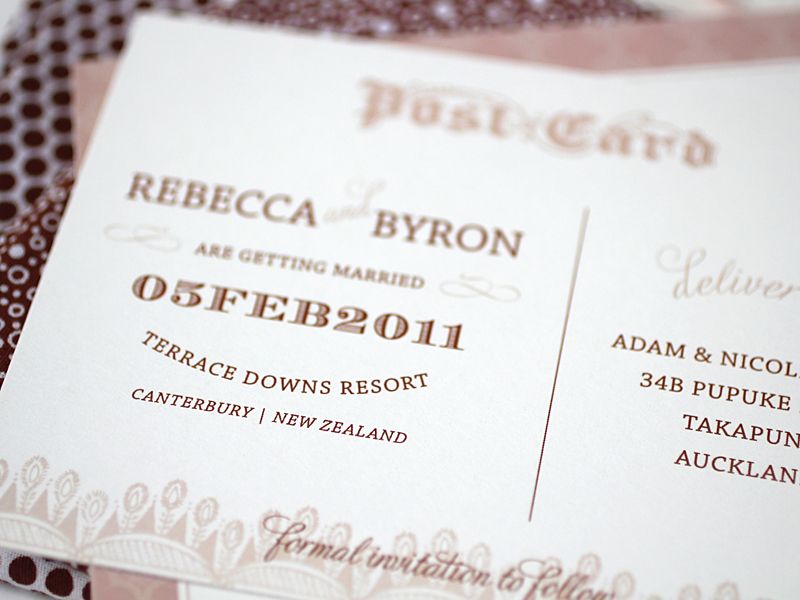 Post Card
REBECCA and BYRON
ARE GETTING MARRIED
05FEB2011
TERRACE DOWNS RESORT
CANTERBURY | NEW ZEALAND
deliver
ADAM & NICOL
34B PUPUKE
TAKAPUN
AUCKLAN
formal invitation to follow